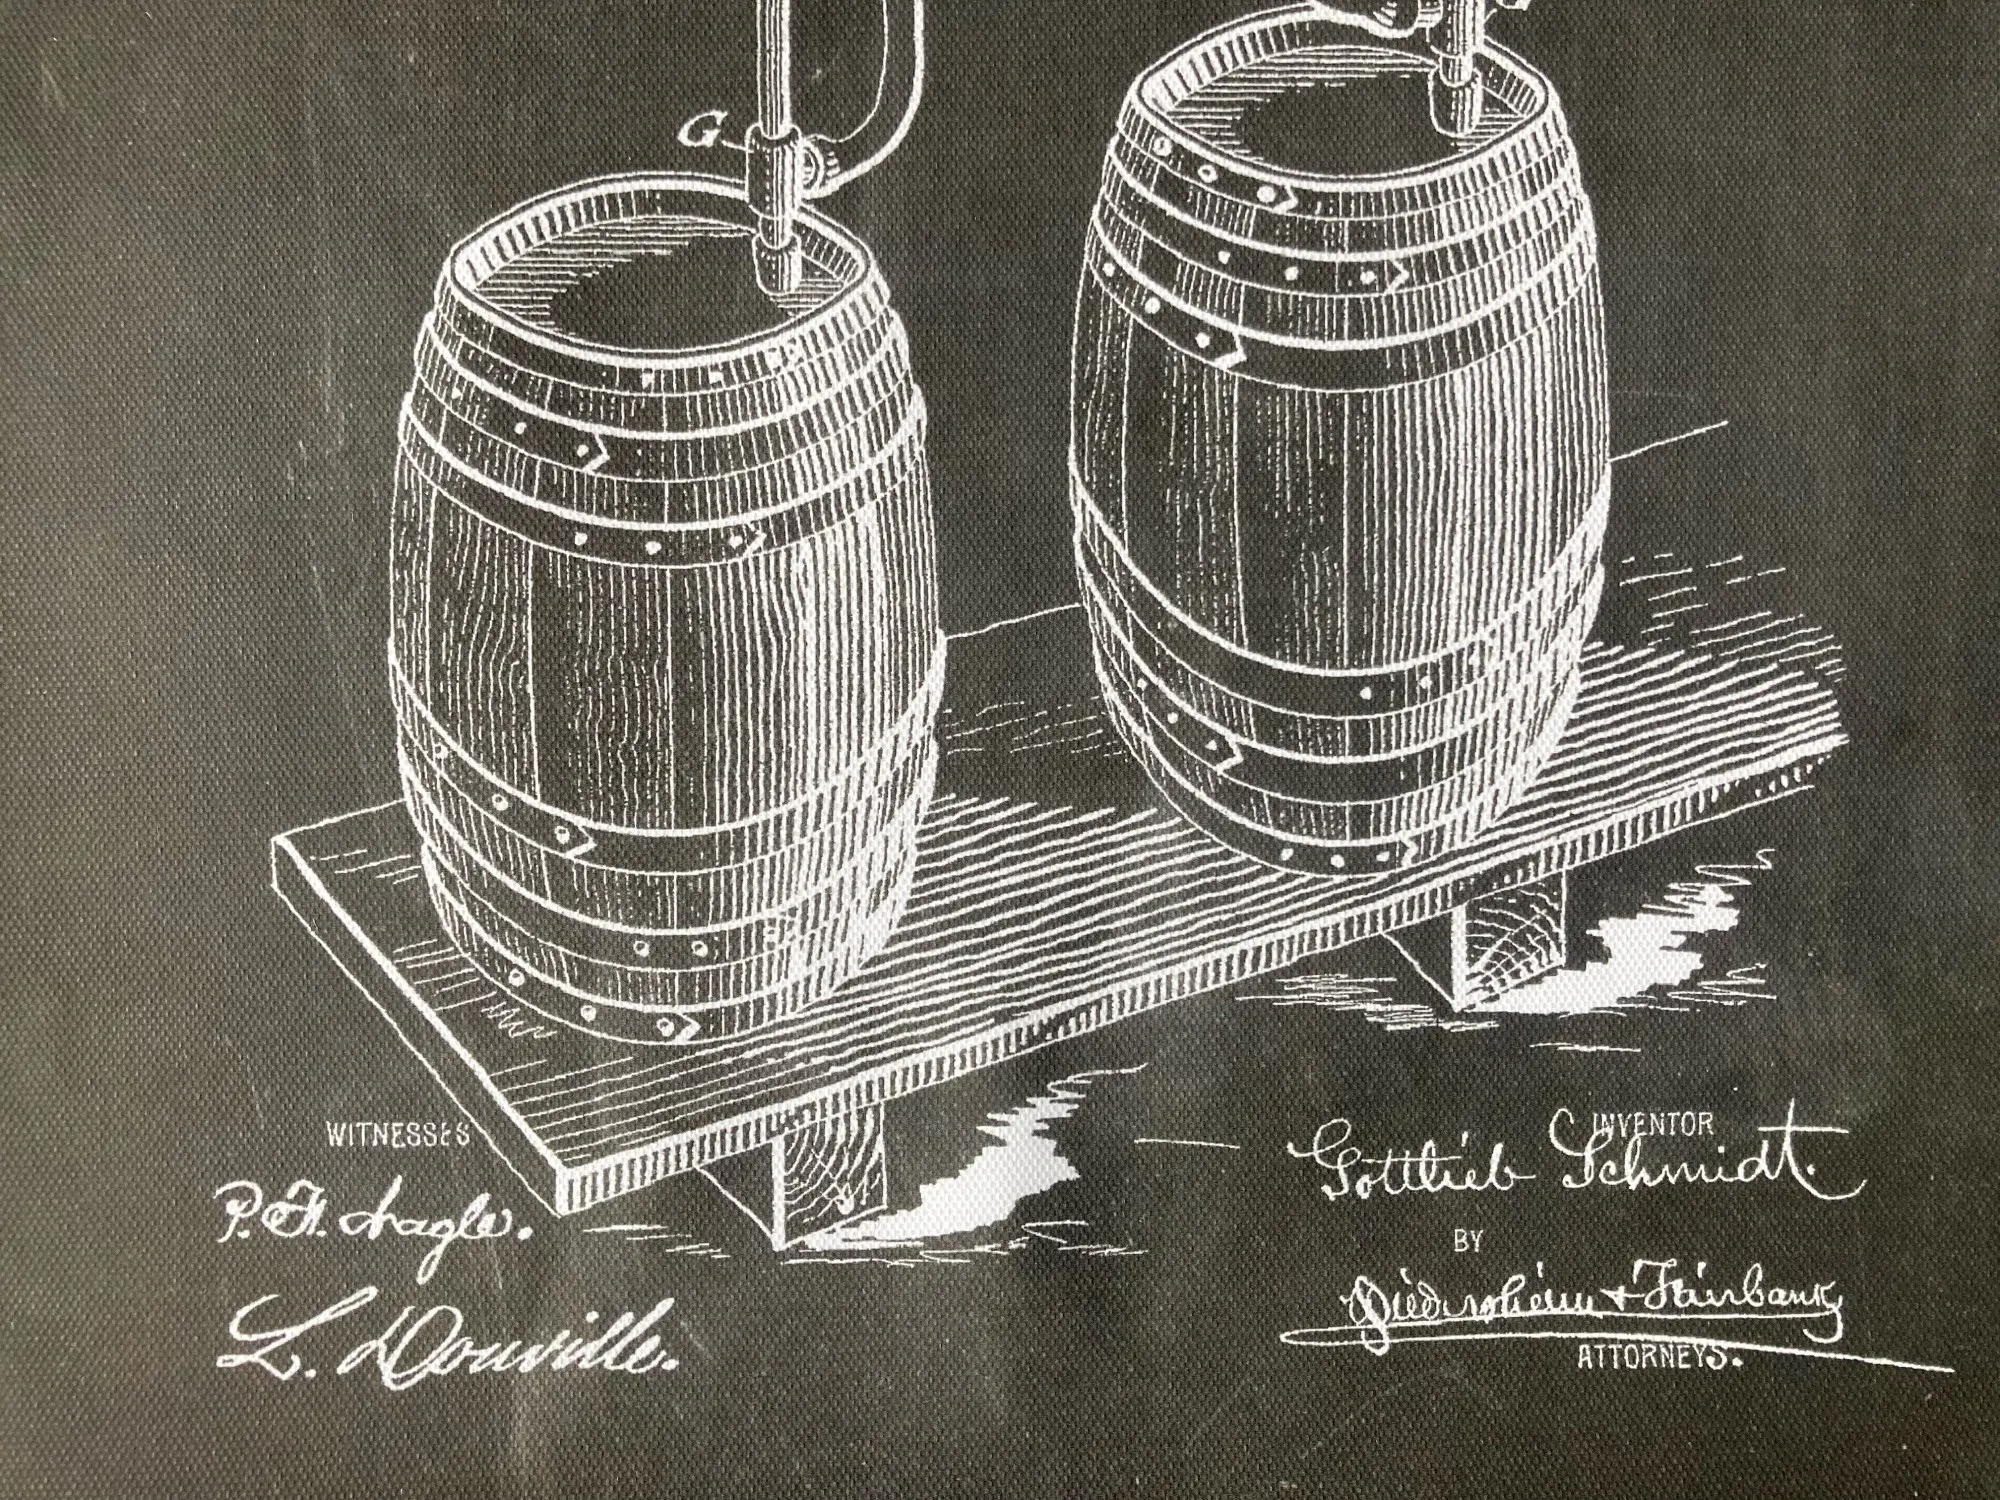 G
WITNESSES
P. H. Nagle.
L. Douville.
INVENTOR
Gottlieb Schmidt.
BY
Diedersheim & Fairbank
ATTORNEYS.